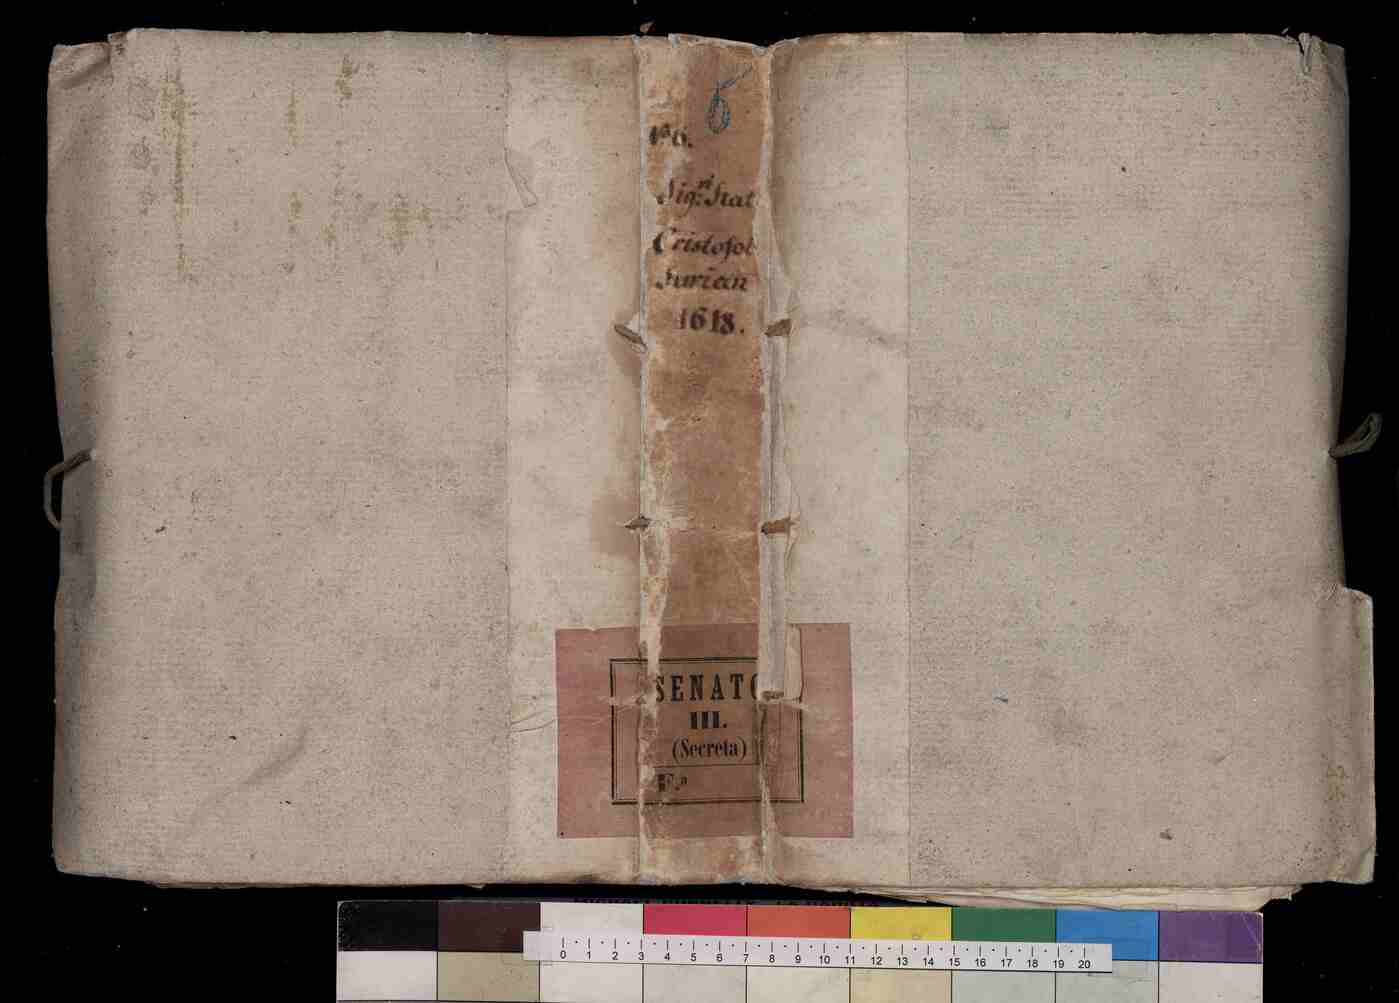 6
Nº 6.
Sig.ri Stat
Cristofol
Surian
1618.
SENATO
III.
(Secreta)
F.a
0 1 2 3 4 5 6 7 8 9 10 11 12 13 14 15 16 17 18 19 20